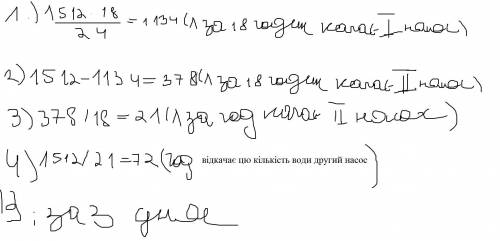 1.) 1512·18/24 = 1134 (л за 18 годин качає I насос)
2) 1512-1134=378 (л за 18 годин качає II насос)
3) 378/18=21 (л за год качає II насос)
4) 1512/21=72 (год відкачає цю кількість води другий насос)
В; за 3 дні